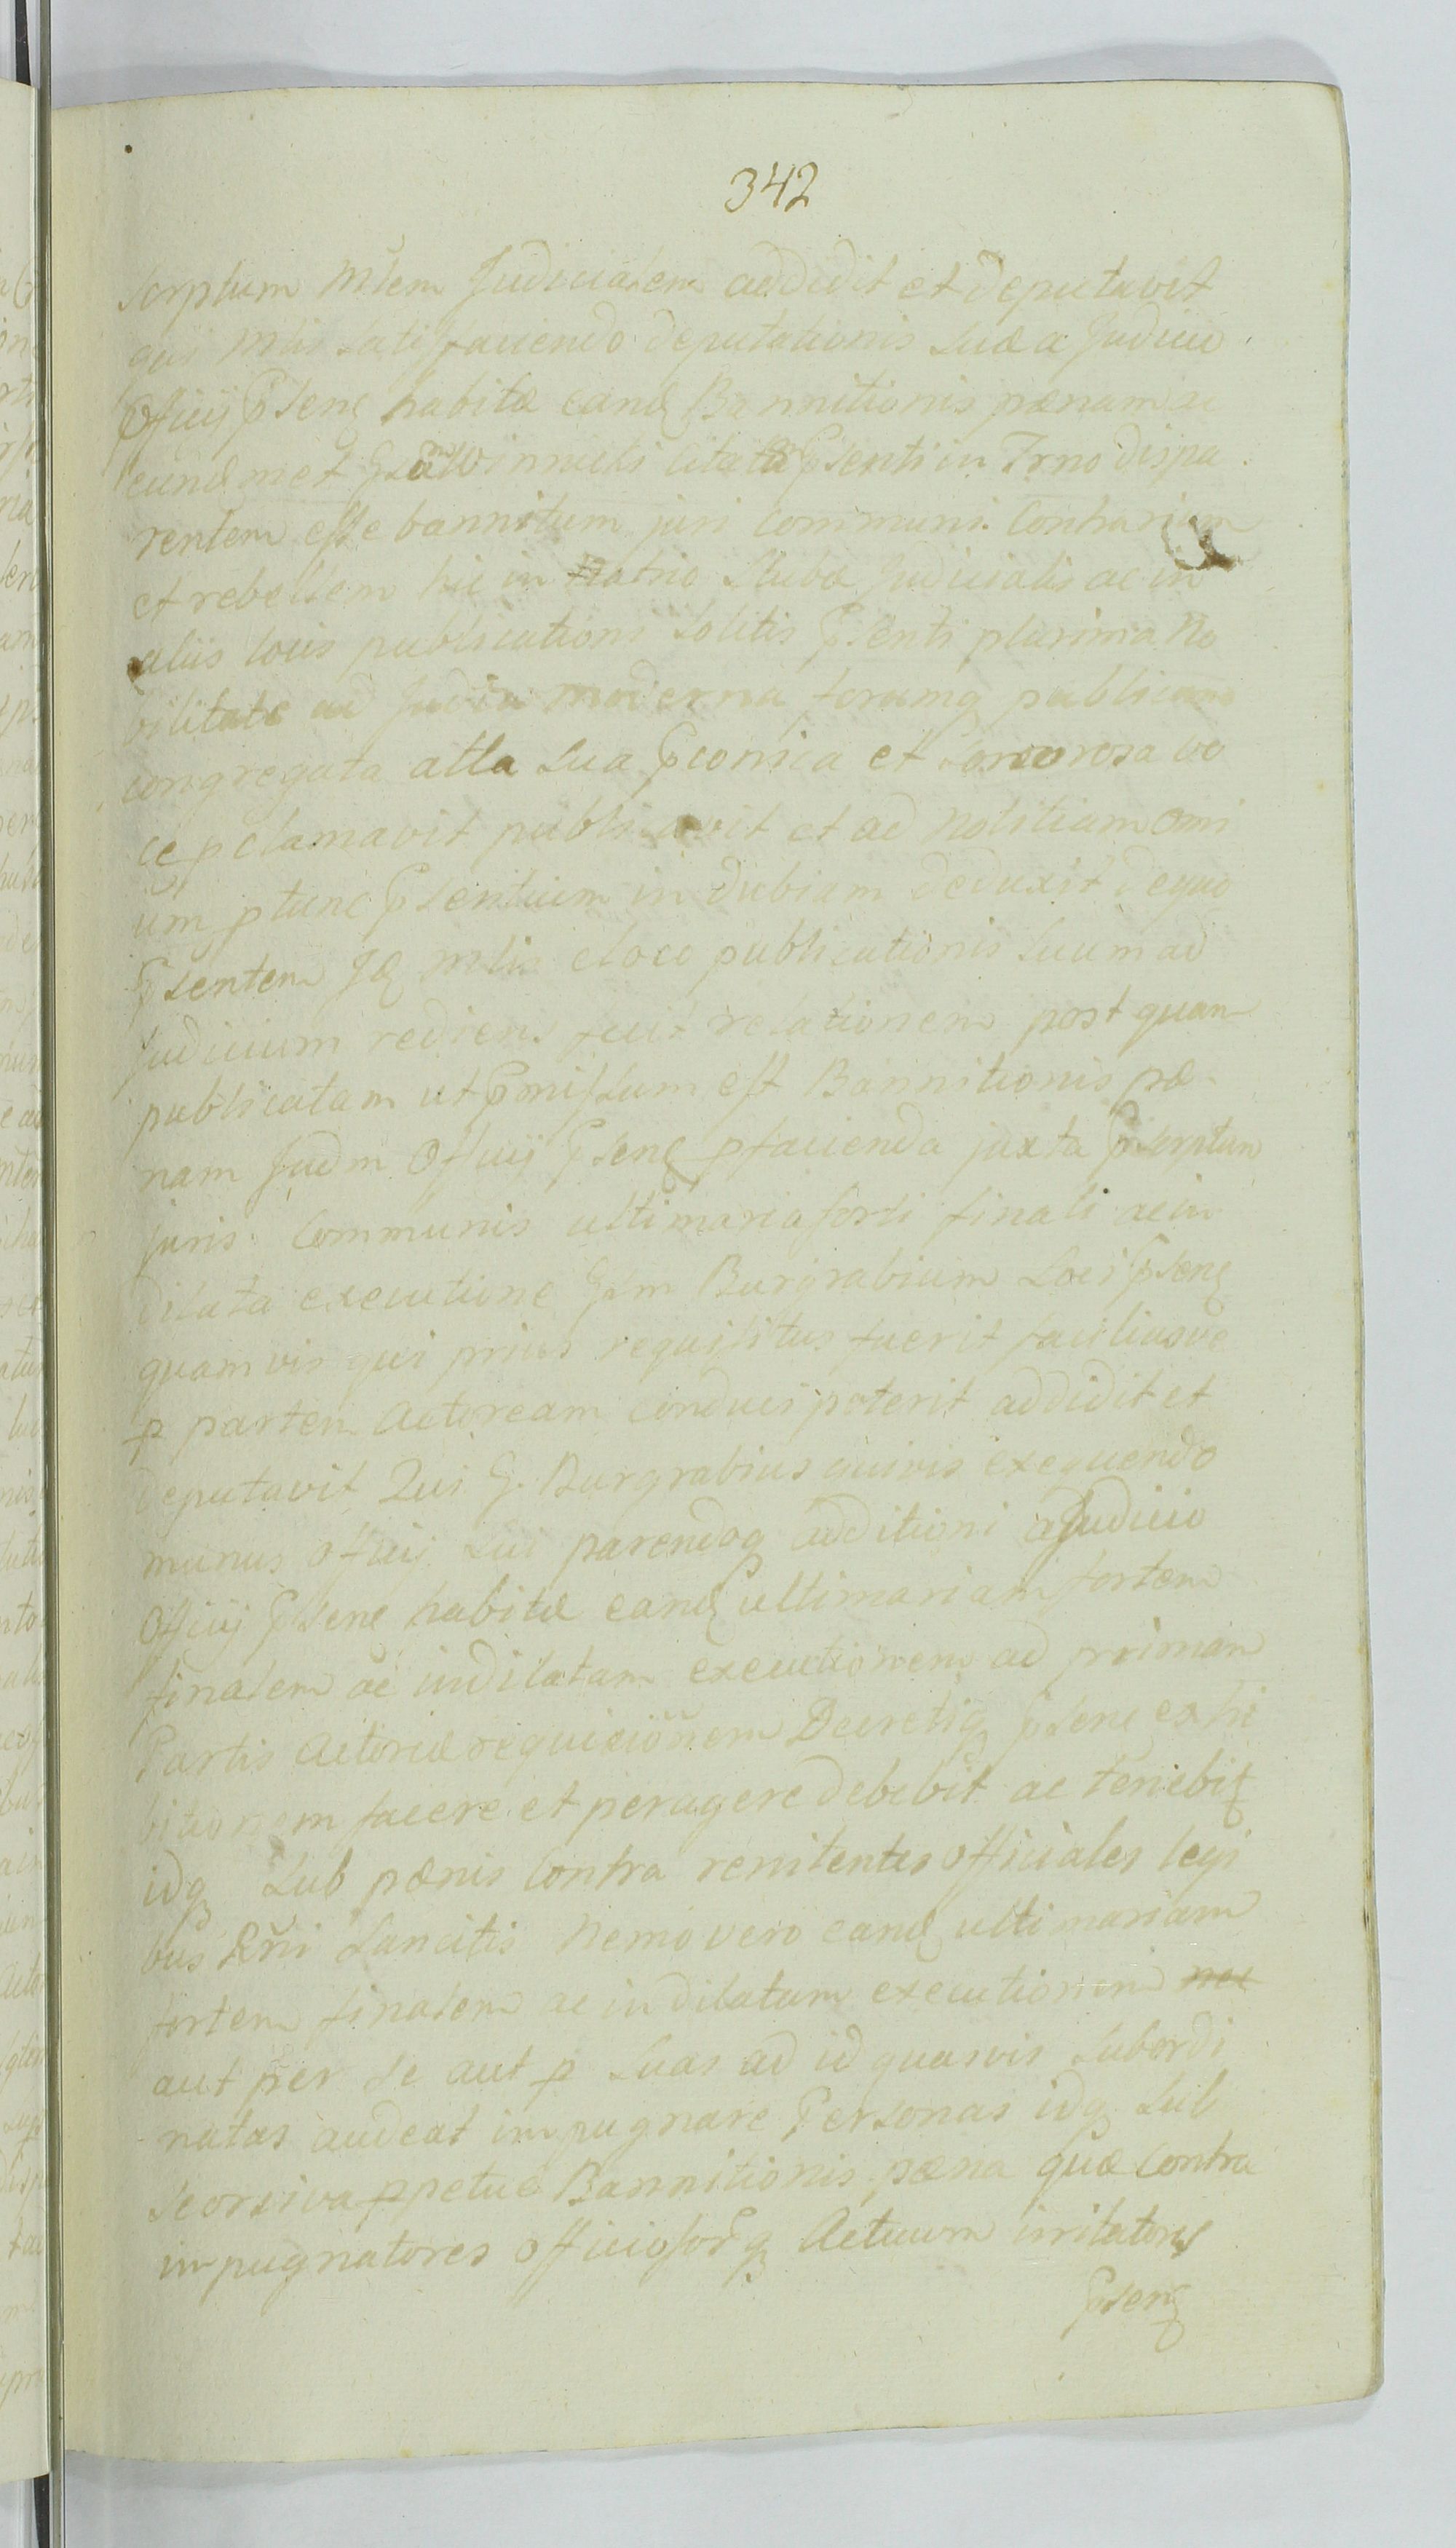 342
scrptum Mlem Judicialem addidit et deputavit
qui Mlis satisfaciendo deputationis suæ a Judicio
Officij Psenę habitæ eandę Bannitionis pænam
eundmet citata Psenti in Trno dispa
rentem esse bannitum juri communi Contrarium
et rebellem hic in atrio Stubæ Judicialis ac in
aliis locis publicationi solitis Psenti plurima No
bilitate ad Judia moderna forumq publicum
congregata alta sua Pconica et sonorosa vo
ce pclamavit publicavit et ad notitiam omi
um ptunc Psentium in dubiam deduxit de quo
Psentem Jd Mlis eloco publicationis suum ad
Judicium rediens fecit relationem post quam
publicatam ut Pmissum est Bannitionis pæ
nam Judm Officij Psenę pfacienda juxta Pscrptum
juris Communis ultimaria forti finali ac in
dilata executione Gsm Burgrabium Loci Psenę
quamvis qui prius requisitus fuerit faciliusve
p partem Actoream conduci poterit addidit et
deputavit Qui G. Burgrabius quivis exequendo
munus officij sui parendoq additioni a Judicio
Officij Psenę habitæ eandę ultimariam fortem
finalem ac indilatam executionem ad primam
Partis Actoreæ requicionem Decretiq Psenę exhi
bitionem facere et peragere debebit ac tenebit
idq sub pænis contra renitentes officiales legi
bus Rñi sancitis Nemo vero eandę ultimariam
fortem finalem ac indilatam executionem nec
aut per se aut p suas ad id quasvis subordi
natas audeat impugnare Personas idq sub
seorsiva ppetuæ Bannitionis pæna quæ contra
impugnatores officiosorq Actuum irritatores
Psenę